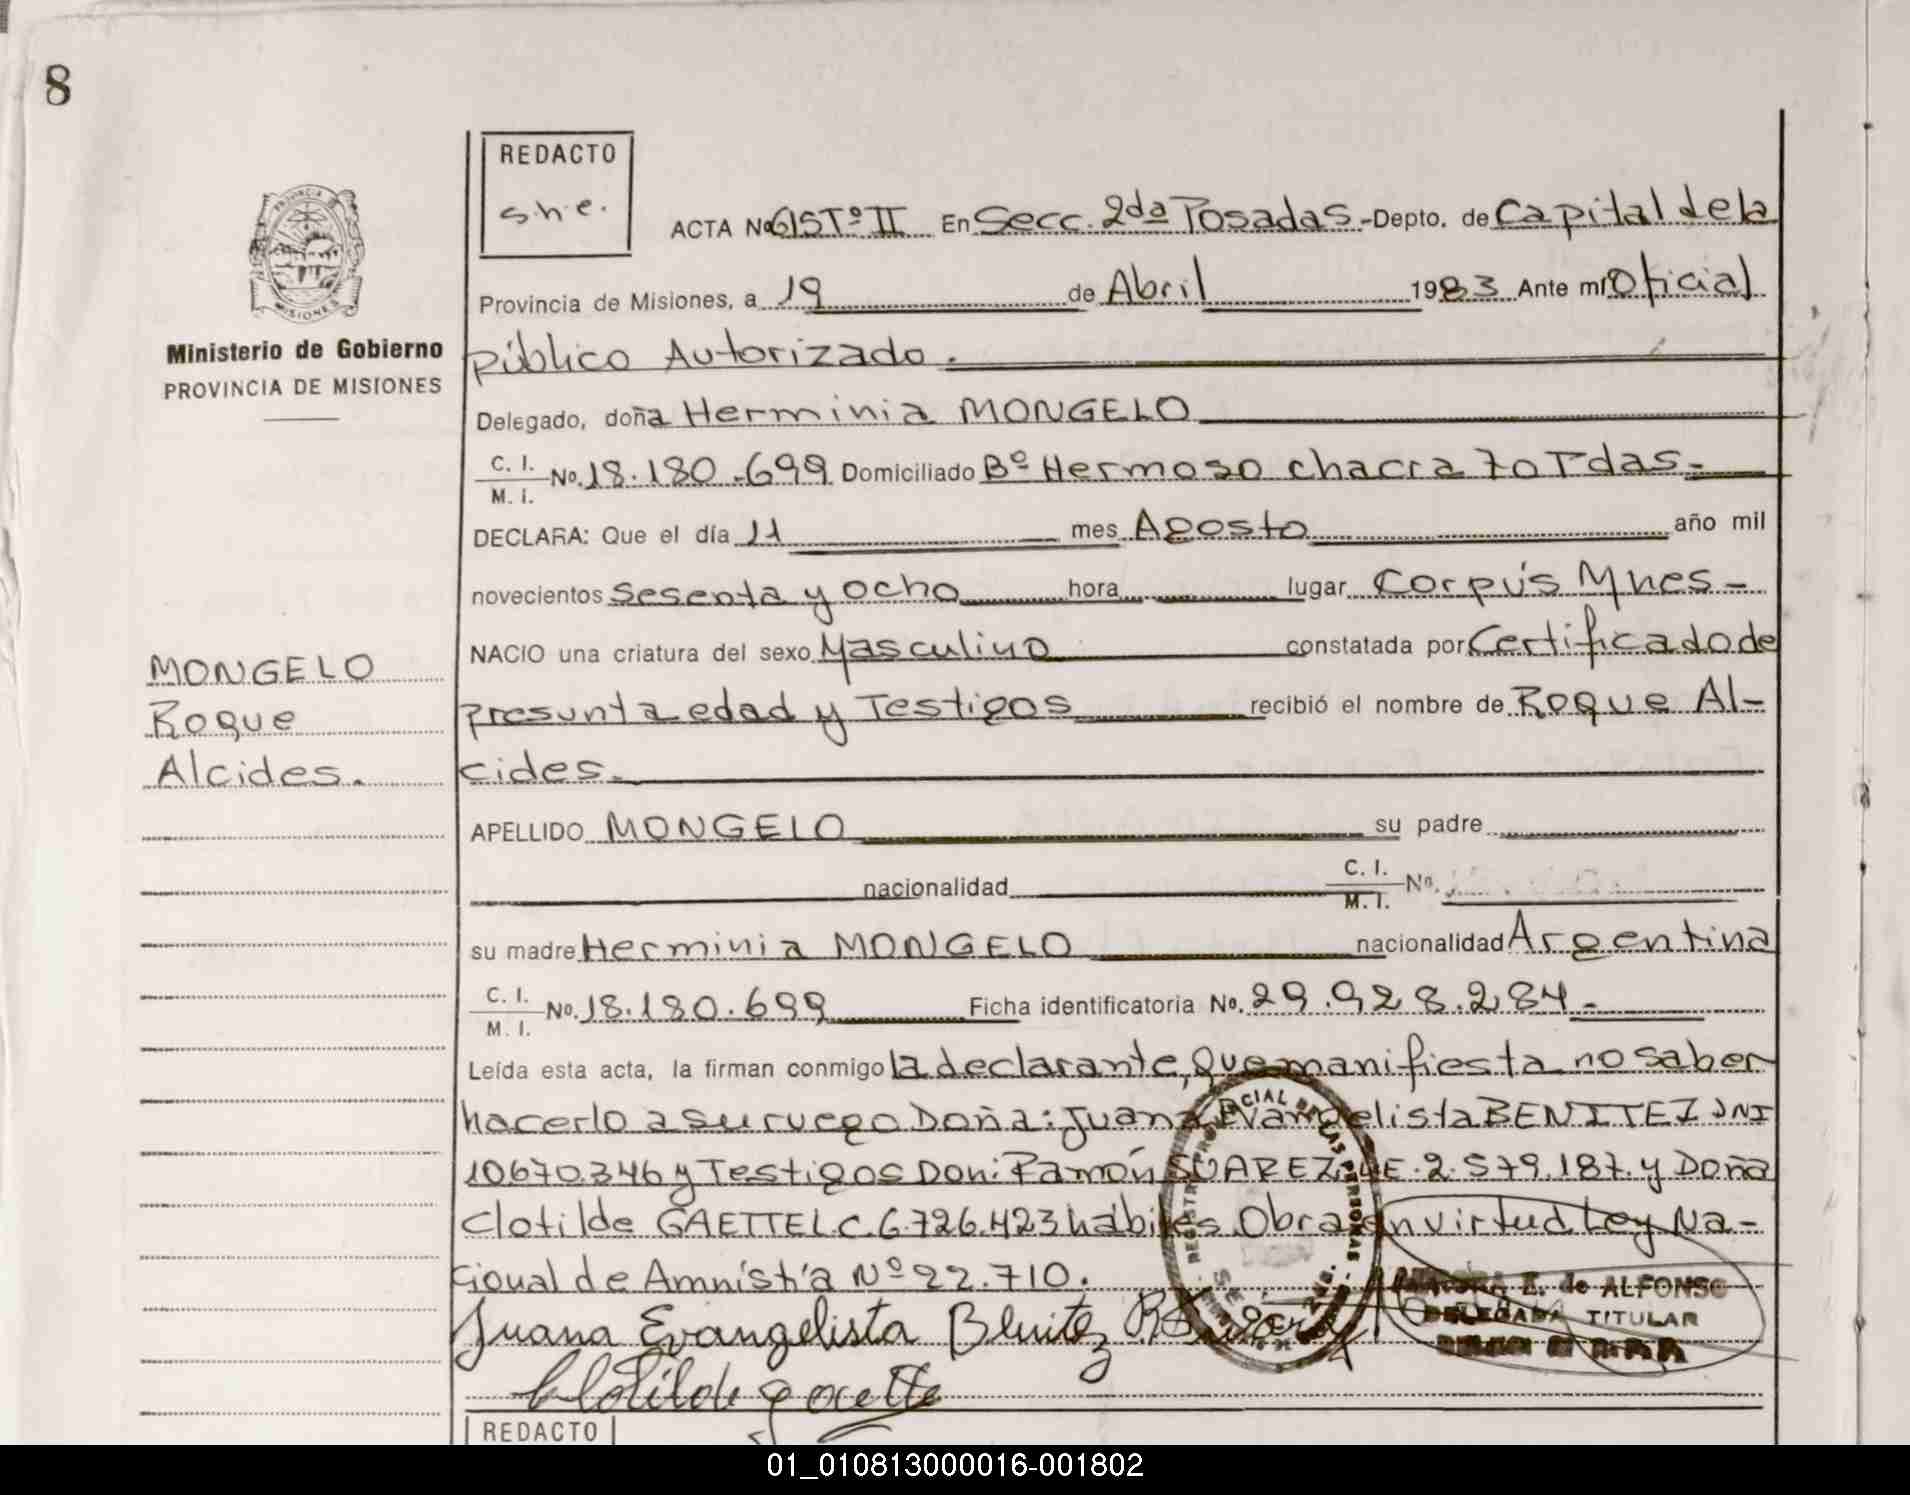 8
REDACTO
s.h.e.
ACTA No 615 Tº II En Secc. 2da Posadas - Depto. de Capital de la
Provincia de Misiones, a 19 de Abril 1983 Ante mi Oficial
Ministerio de Gobierno
PROVINCIA DE MISIONES
público Autorizado.
Delegado, doña Herminia MONGELO
C. I.
M. I. No. 18.180.699 Domiciliado Bº Hermoso chacra 70 Pdas.-
DECLARA: Que el día 11 mes Agosto año mil
novecientos Sesenta y ocho hora lugar Corpus Mnes-
NACIO una criatura del sexo Masculino constatada por Certificado de
presunta edad y Testigos recibió el nombre de Roque Al-
cides.
MONGELO
Roque
Alcides.
APELLIDO MONGELO su padre
nacionalidad C. I.
M. I. No.
su madre Herminia MONGELO nacionalidad Argentina
C. I.
M. I. No. 18.180.699 Ficha identificatoria No. 29.928.284-
Leída esta acta, la firman conmigo la declarante, que manifiesta no saber
hacerlo a su ruego Doña: Juana Evangelista BENITEZ DNI
10670.346 y Testigos Don: Ramón SUAREZ LE. 2.579.187. y Doña
Clotilde GAETTE LC. 6.726.423 hábiles. Obra en virtud Ley Na-
cional de Amnistía Nº 22.710.
Juana Evangelista Benitez
Clotilde gaette
REGISTRO PROVINCIAL DE LAS PERSONAS
E. de ALFONSO
DELEGADA TITULAR
REDACTO
01_010813000016-001802